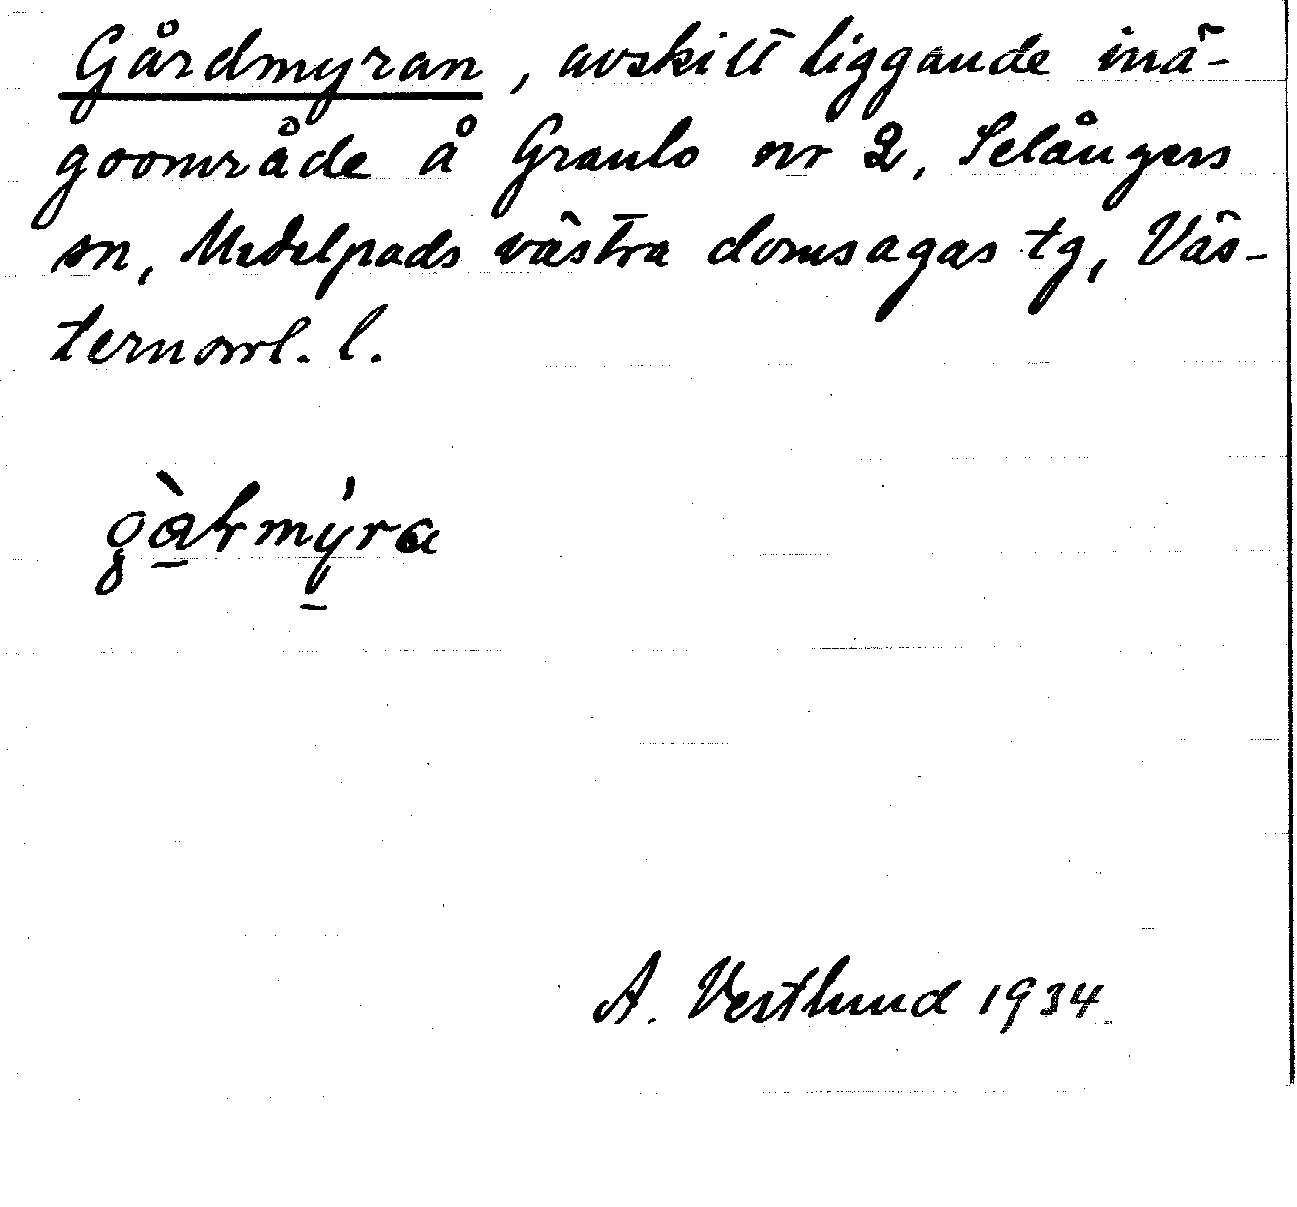 Gårdmyran, avskilt liggande inä-
goområde å Granlo nr 2, Selångers
sn, Medelpads västra domsagas tg, Väs-
ternorrl. l.
A. Vestlund 1934